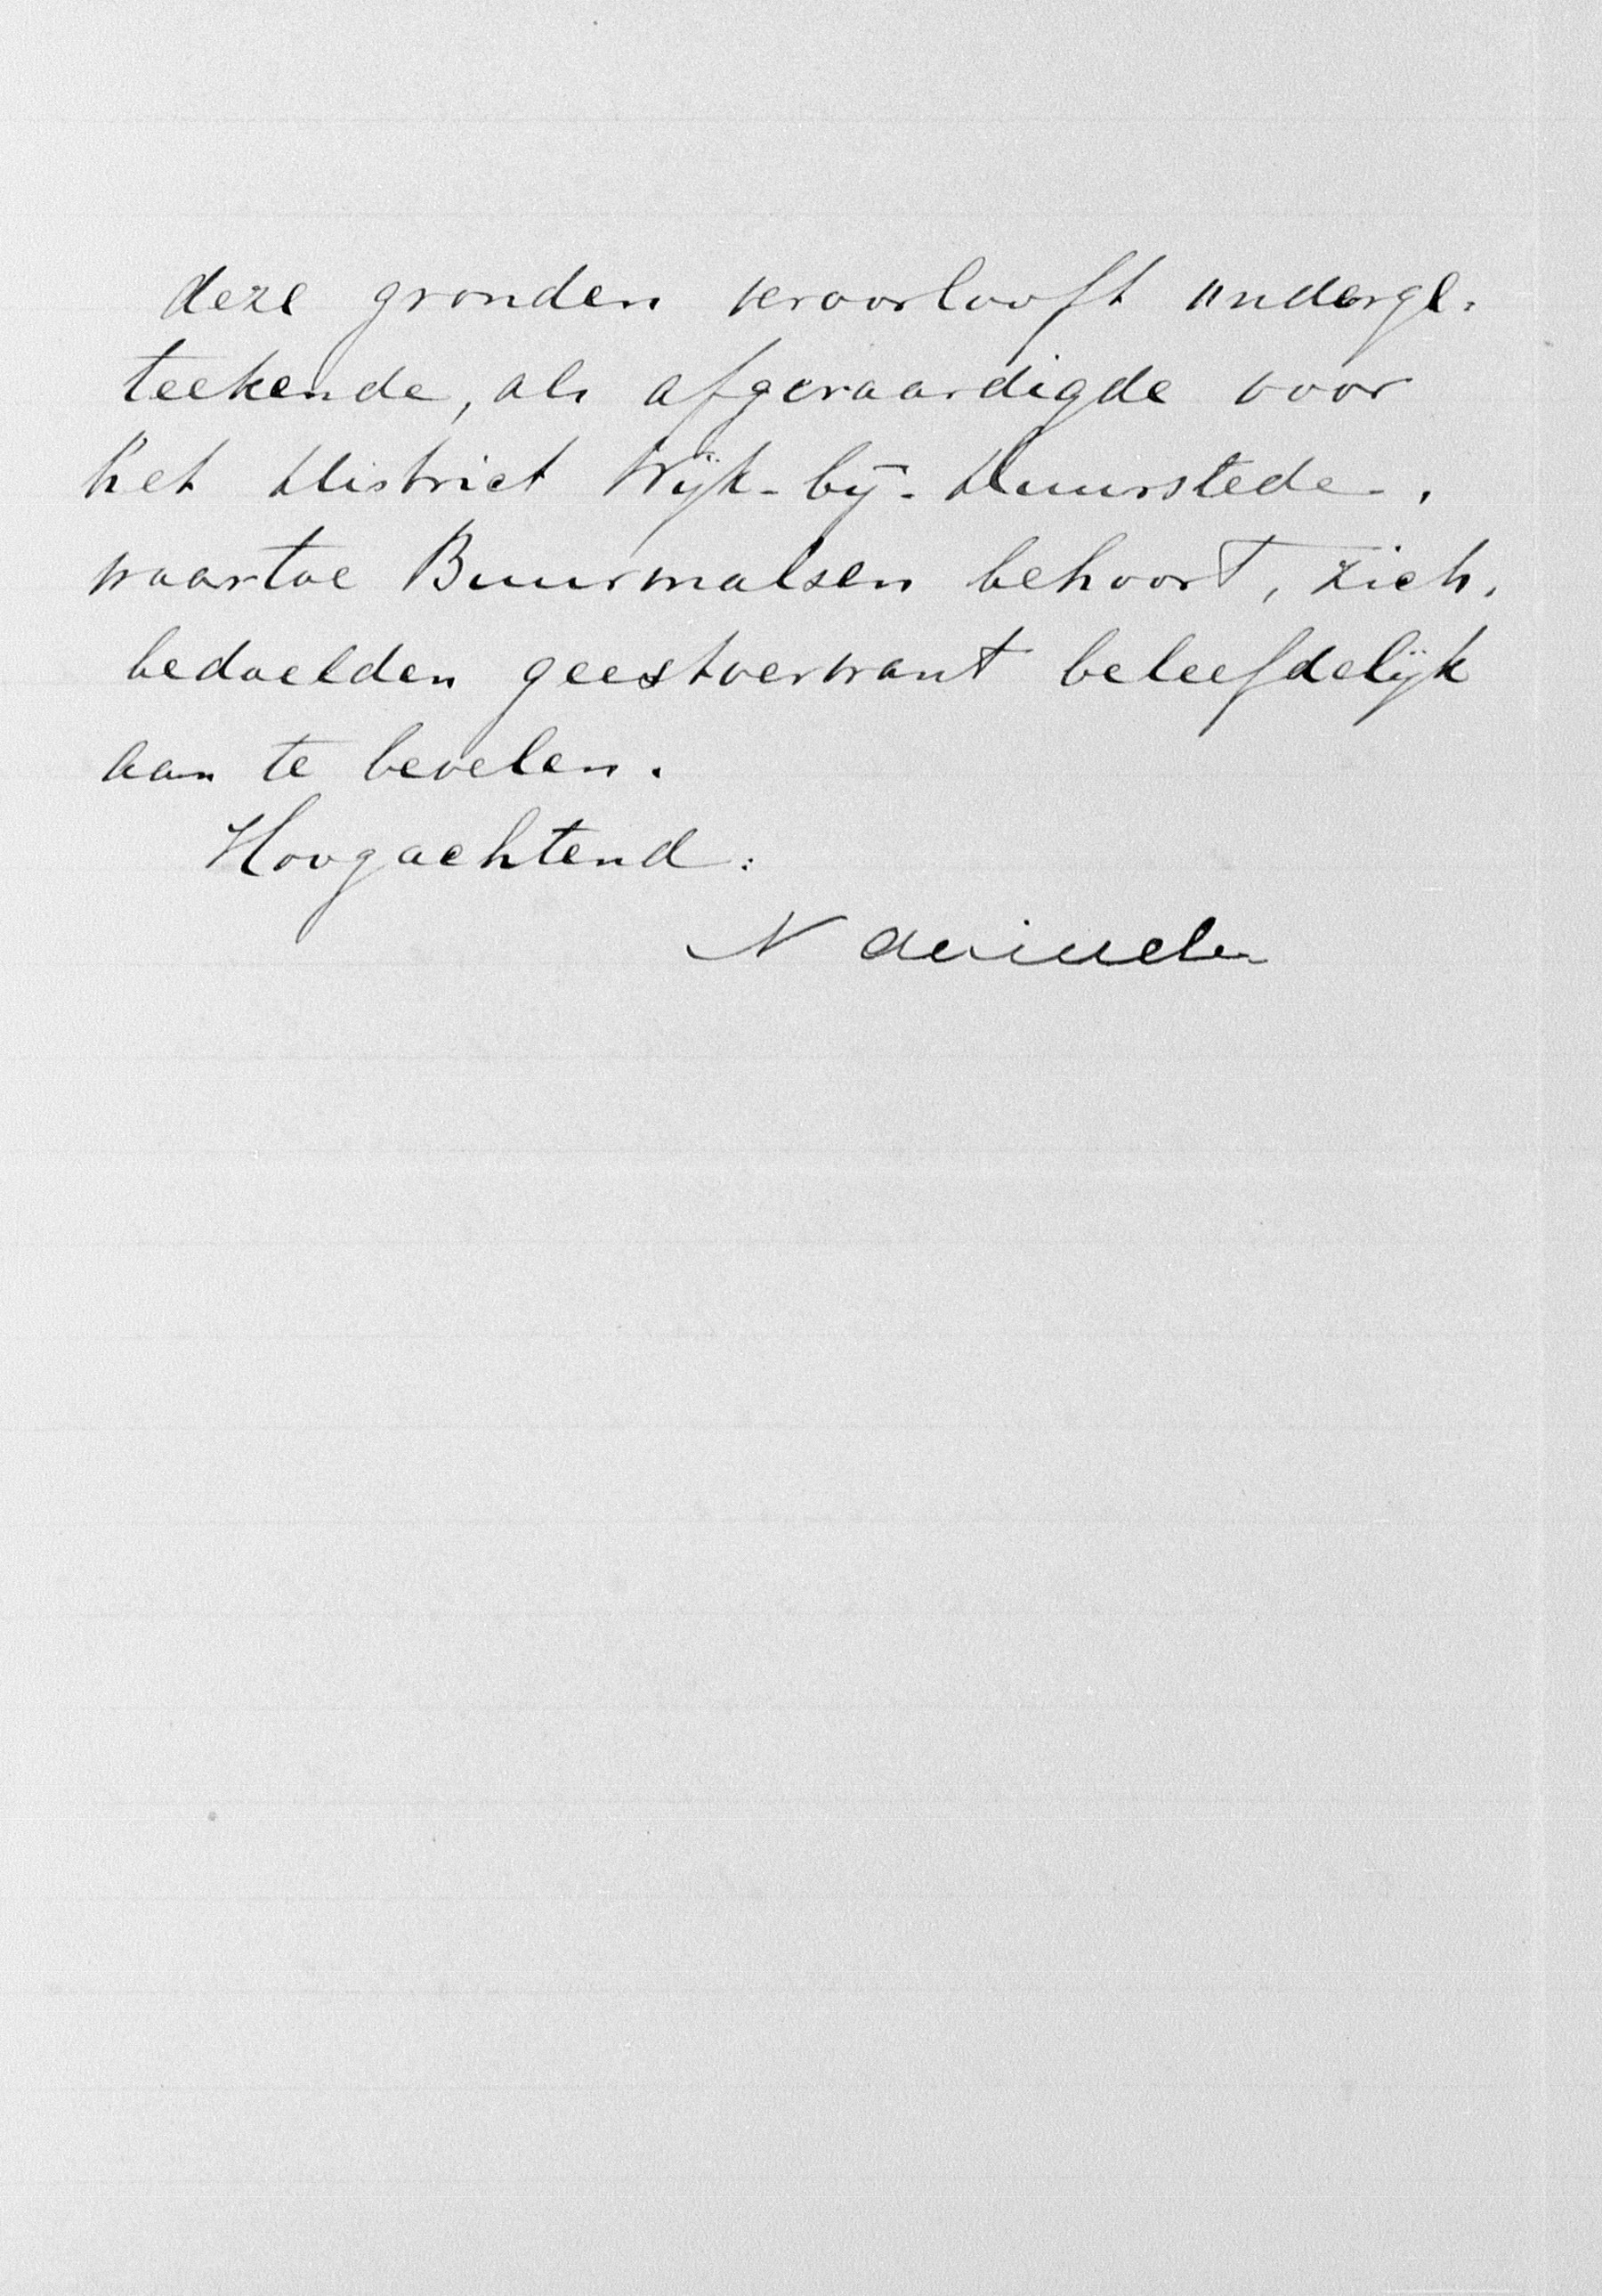 deze gronden veroorlooft onderge-
teekende, als afgevaardigde voor
het District Wijk-bij-Duurstede.,
waartoe Buurmalsen behoort, zich,
bedoelden geestverwant beleefdelijk
aan te bevelen.
Hoogachtend:
N